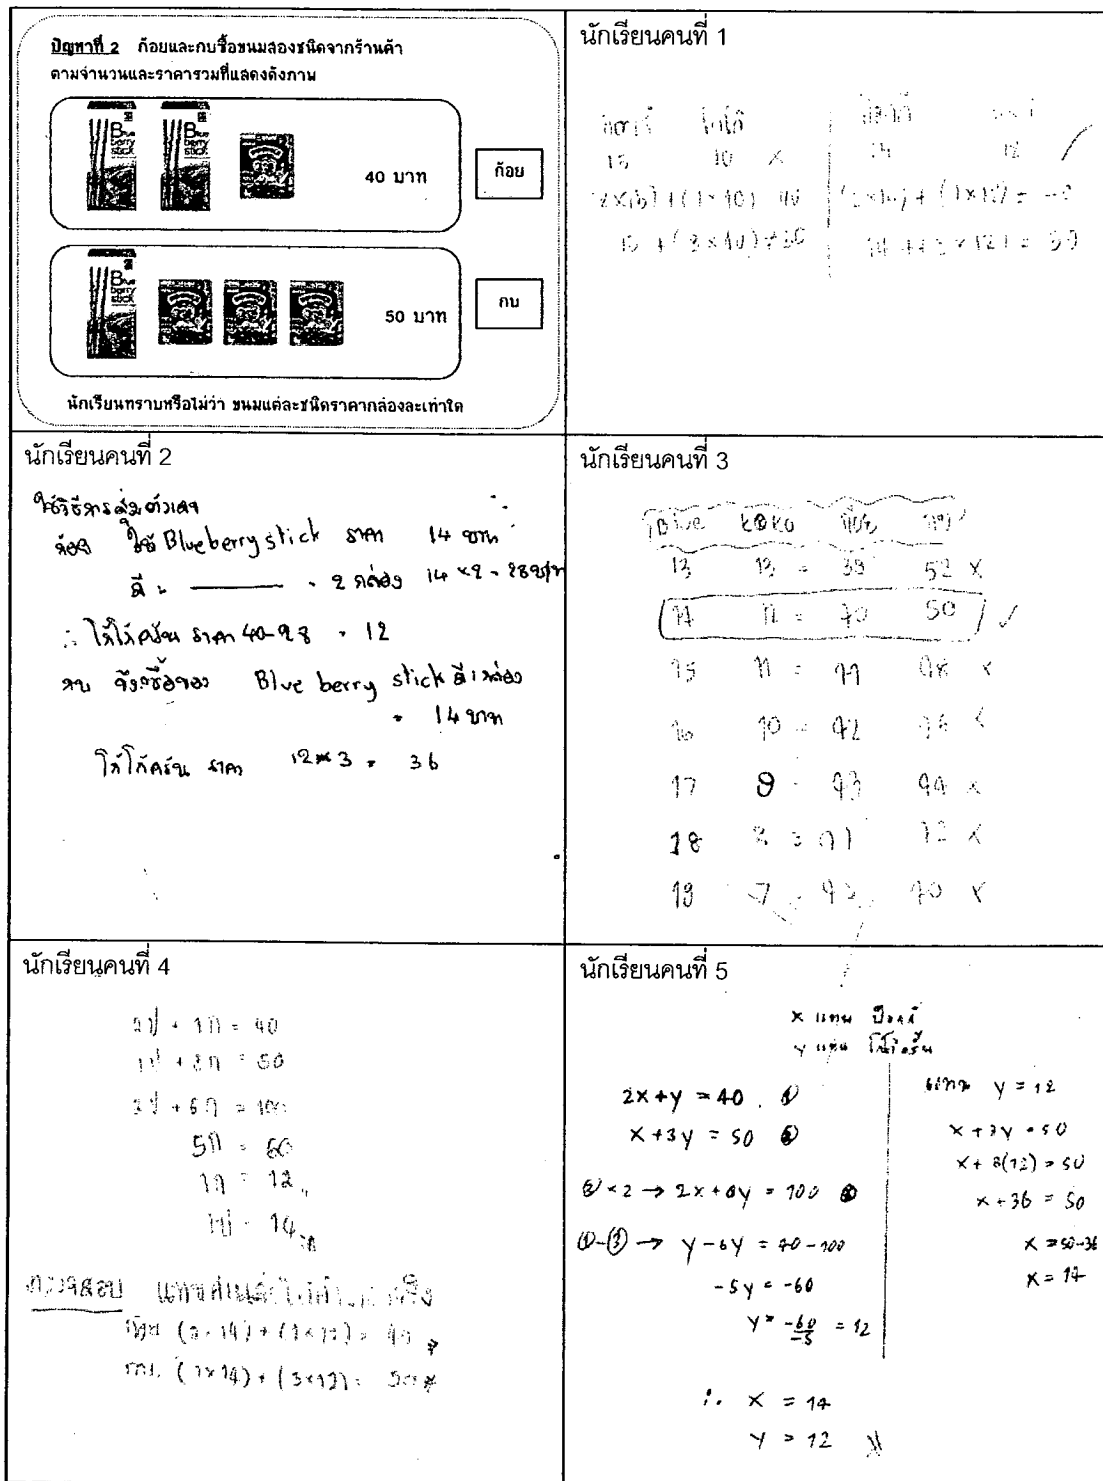 ปัญหาที่ 2 ก้อยและกบซื้อขนมสองชนิดจากร้านค้า
ตามจำนวนและราคารวมที่แสดงดังภาพ
Blue berry stick
Blue berry stick
40 บาท
ก้อย
Blue berry stick
50 บาท
กบ
นักเรียนทราบหรือไม่ว่า ขนมแต่ละชนิดราคากล่องละเท่าใด
นักเรียนคนที่ 1
15 10 ×
14 12 /
(2×15)+(1×10) 40
(2×14)+(1×12) = 40
15 + (3×10) ≠ 50
14 + (3×12) = 50
นักเรียนคนที่ 2
ใช้วิธีการสุ่มตัวเลข
ก้อย ใช้ Blueberry stick ราคา 14 บาท
มี 2 กล่อง 14×2 = 28 บาท
∴ โก๋โก๋ครัน ราคา 40-28 = 12
กบ จึงซื้อของ Blue berry stick มี 1 กล่อง
= 14 บาท
โก๋โก๋ครัน ราคา 12×3 = 36
นักเรียนคนที่ 3
Blue koko ก้อย กบ
13 13 = 39 52 ×
14 12 = 40 50 ✓
15 11 = 41 48 ×
16 10 = 42 46 ×
17 9 = 43 44 ×
18 8 =
19 7
นักเรียนคนที่ 4
2ป + 1ก = 40
1ป + 3ก = 50
2ป + 6ก = 100
5ก = 60
1ก = 12
1ป = 14
ตรวจสอบ
ก้อย (2×14) + (1×12) = 40
กบ. (1×14) + (3×12) = 50
นักเรียนคนที่ 5
x แทน
y แทน
2x+y = 40 ①
x+3y = 50 ②
②×2 → 2x+6y = 100 ③
①-③ → y-6y = 40-100
-5y = -60
y = -60/-5 = 12
แทน y = 12
x+3y = 50
x+3(12) = 50
x+36 = 50
x = 50-36
x = 14
∴ x = 14
y = 12